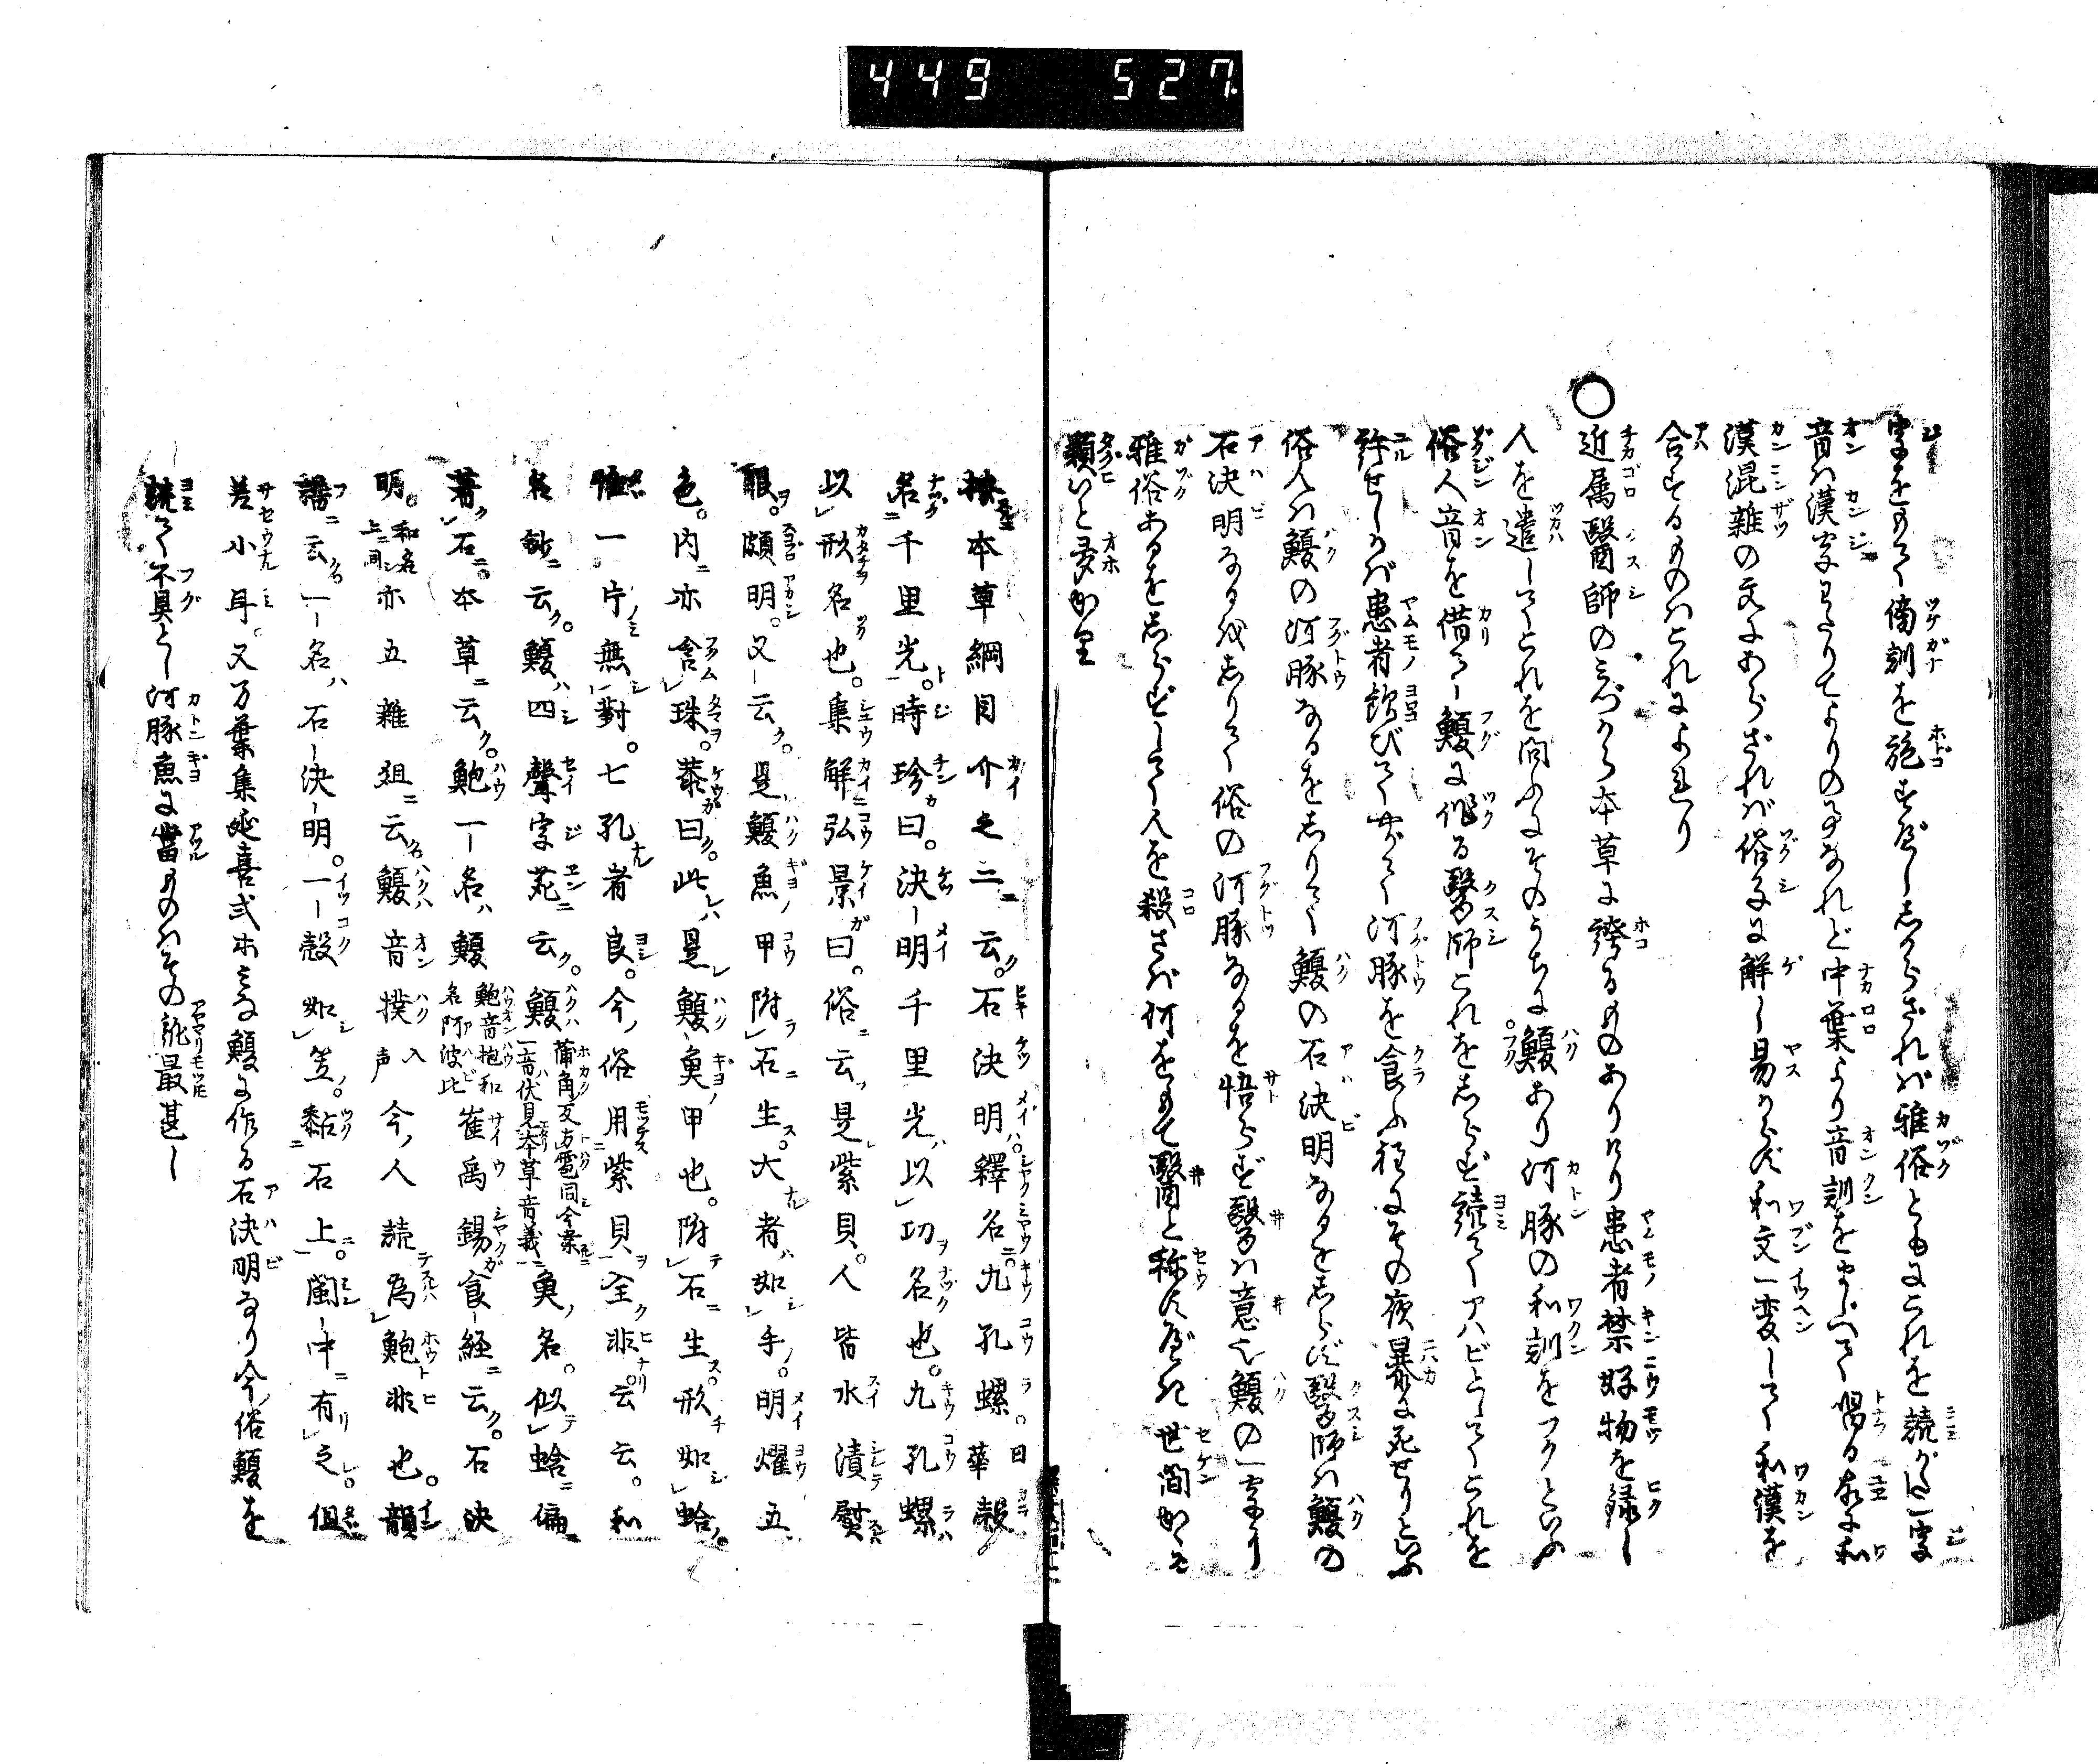 449 527.
字をもて傍訓を施すべししからざれば雅俗ともにこれを読がたし字
音は漢字わたりてよりの事なれど中葉より音訓をまじへて唱る故に和
漢混雑の文にあらざれば俗子に解し易からず和文一変して和漢を
合するものはこれによれり
○近属醫師のみづから本草に誇るものありけり患者禁好物を録し
人を遣してこれを問ふにそのうちに鰒あり河豚の和訓をフクといふ
俗人音を借て鰒に作る醫師これをしらず読てアハビとしてこれを
許せしかば患者歓びてやがて河豚を食ふ程にその夜暴に死せりといふ
俗人は鰒の河豚なるをしりて鰒の石決明なるをしらず醫師は鰒の
石決明なるをしりて俗の河豚なるを悟らず醫は意也鰒の一字より
雅俗あるをしらずして人を殺さば何をもて醫と称すべき世間かくる
類いと多かり
按本草綱目介之二云。石決明釋名九孔螺。日華殻
名千里光。時珍曰。決明千里光以功名也。九孔螺
以形名也。集解弘景曰。俗云是紫貝。人皆水漬熨
眼。頗明。又云。是鰒魚甲附石生。大者如手。明燿五
色。内亦含珠。恭曰。此是鰒魚甲也。附石生形如蛤。
惟一片無對。七孔者良。今俗用紫貝全非。云云。和
名鈔云。鰒四聲字苑云。鰒蒲角反与雹同今案一音伏見本草音義魚名。似蛤偏
著石。本草云。鮑一名鰒鮑音抱和名阿波比崔禹錫食経云。石決
明。和名上同亦五雜俎云鰒音撲入声今人読為鮑非也。韻
譜云一名石決明。一殻如笠。黏石上。閩中有之。但
差小耳。又万葉集延喜式ホみな鰒に作る石決明なり今俗鰒を
読て不具とし河豚魚に當ものはその訛最甚し